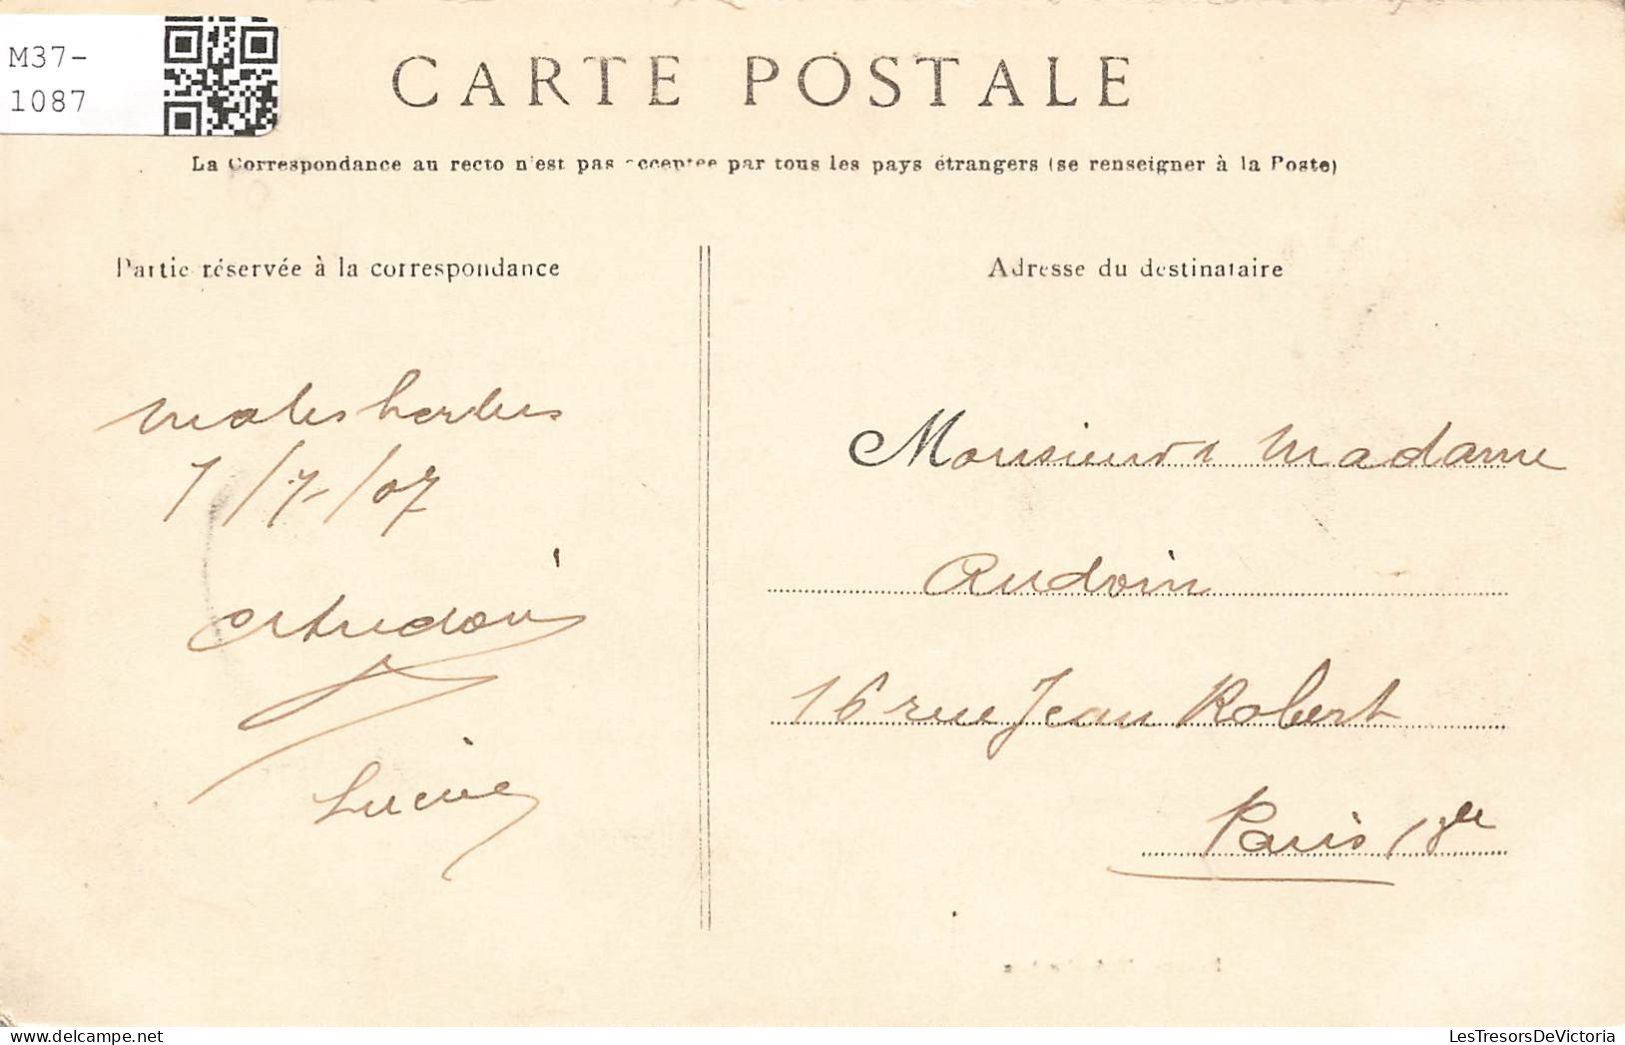 M37-
1087
CARTE POSTALE
La Correspondance au recto n'est pas acceptée par tous les pays étrangers (se renseigner à la Poste)
Partie réservée à la correspondance
Adresse du destinataire
Malesherbes
1/7/07
Audoin
Lucie
Monsieur & Madame
Audoin
16 rue Jean Robert
Paris
delcampe.net
LesTresorsDeVictoria